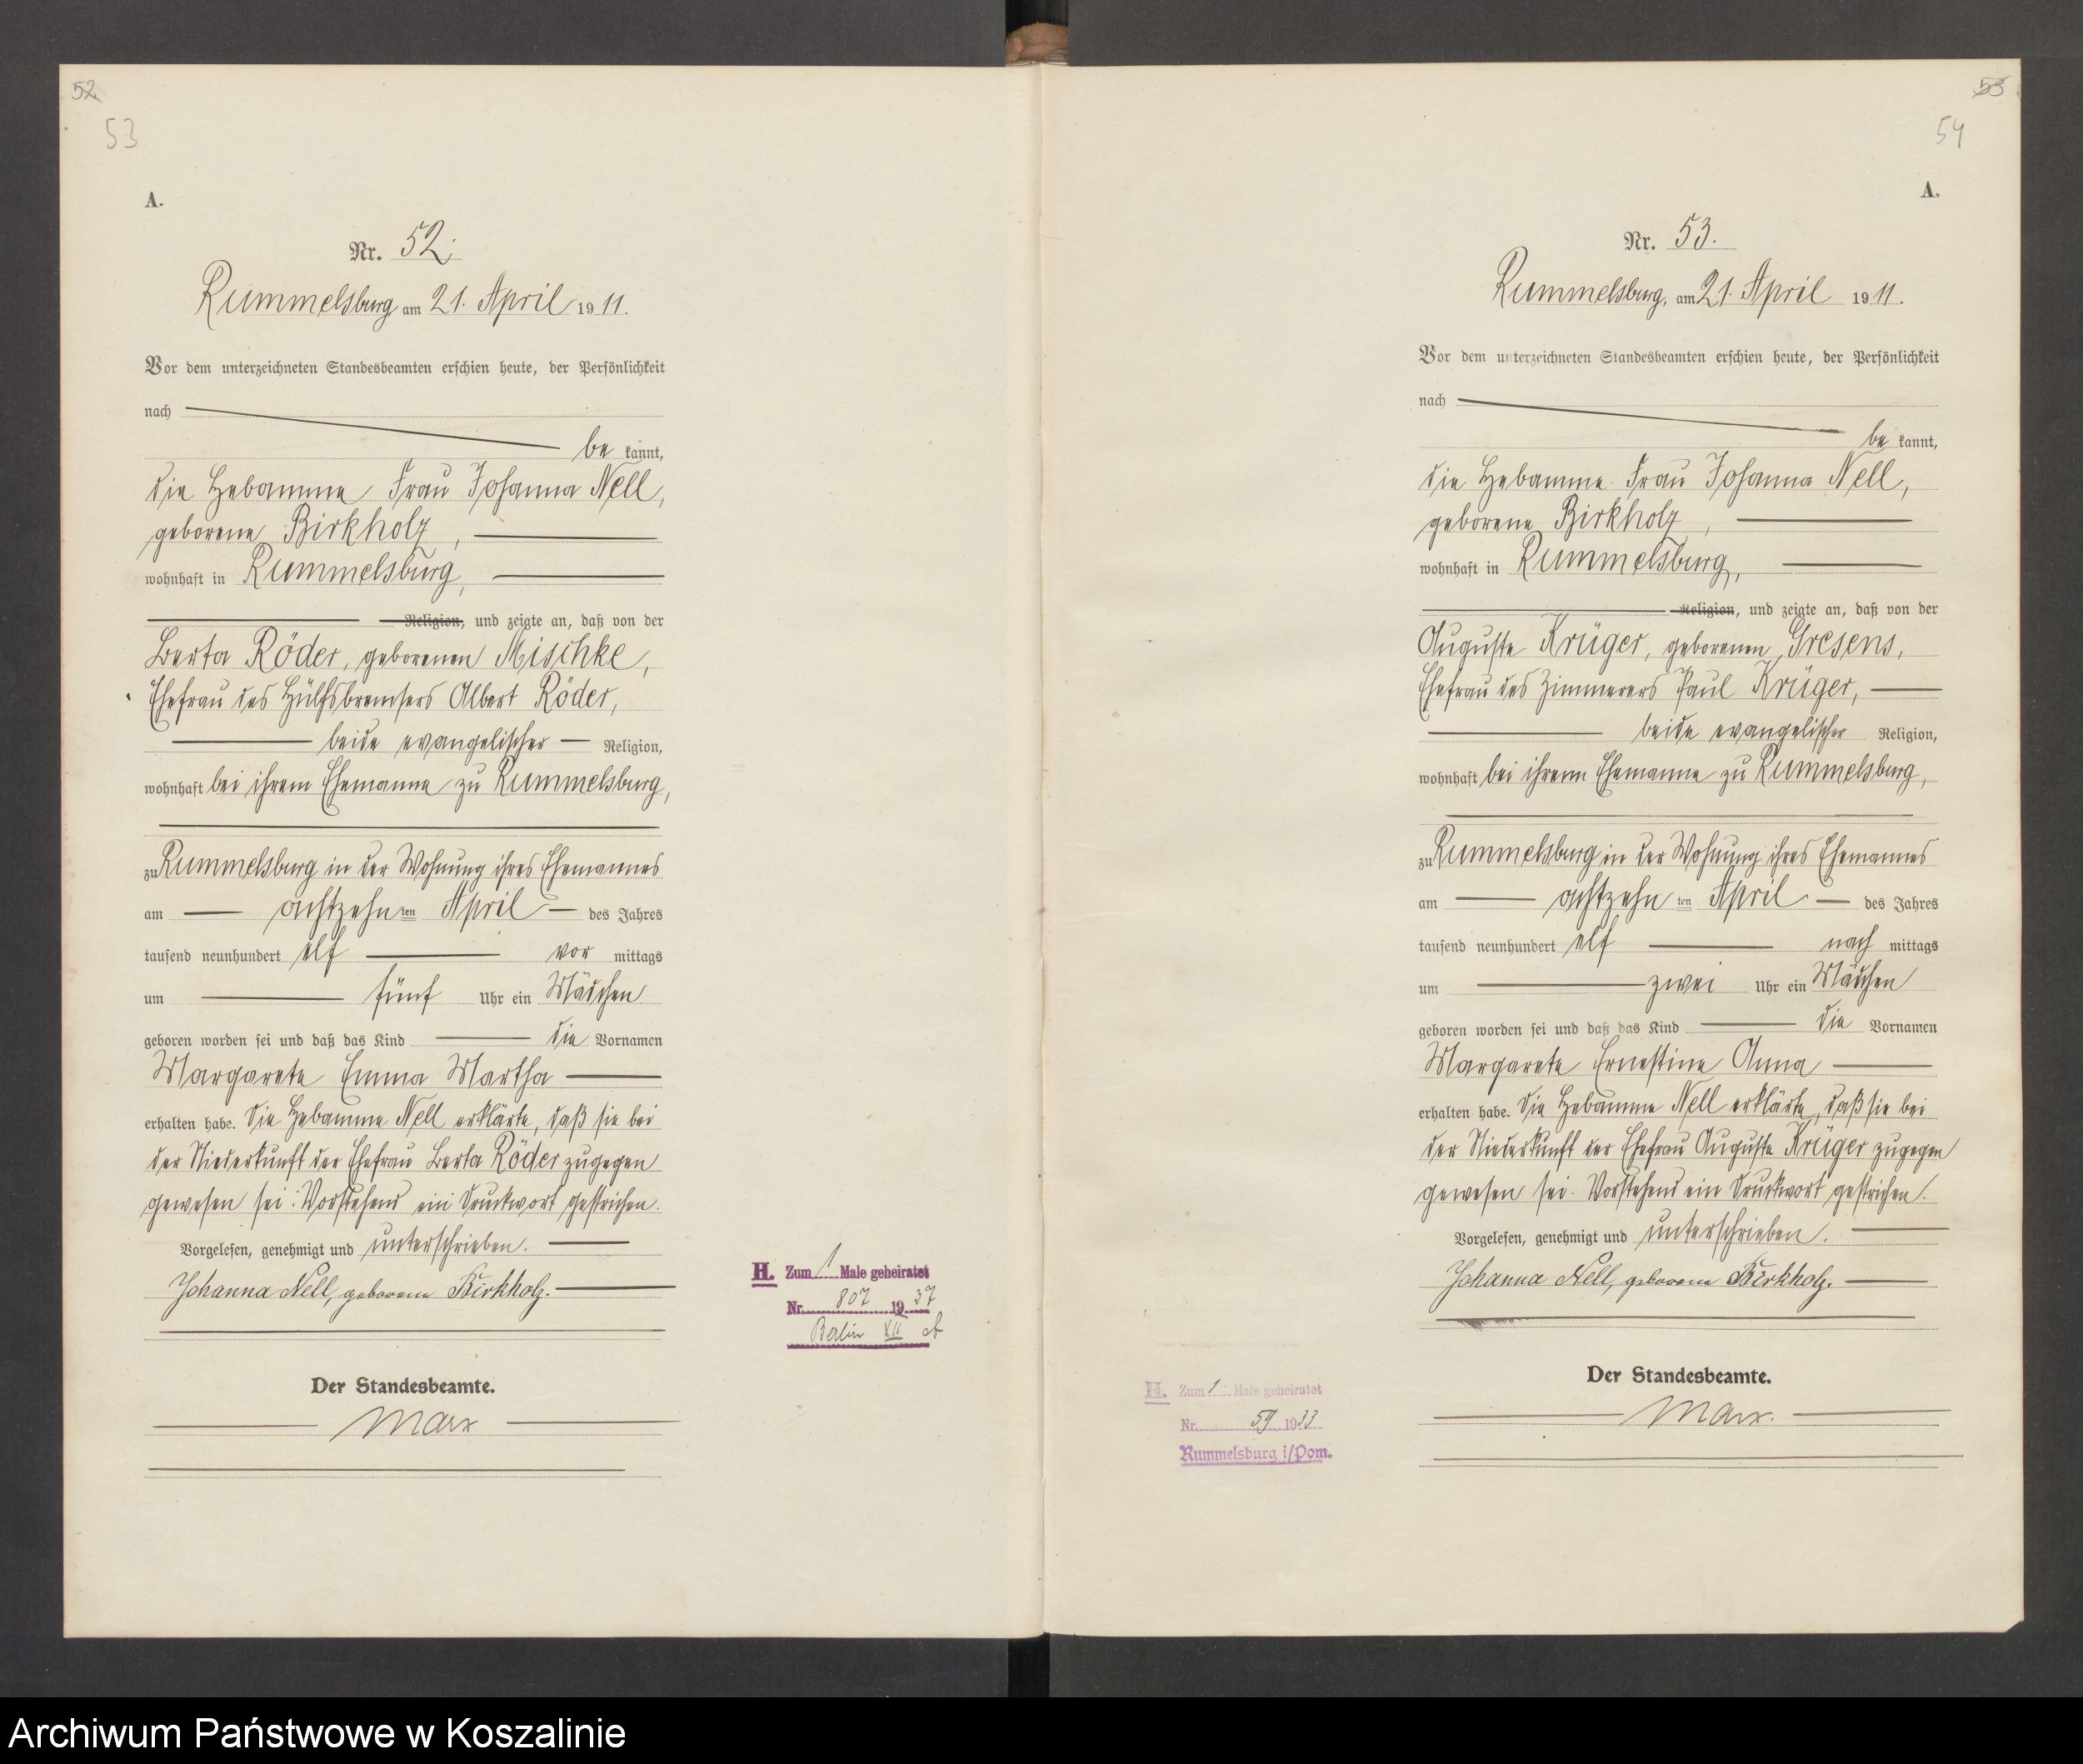 52
53
A.
Nr. 52.
Rummelsburg am 21. April 1911.
Vor dem unterzeichneten Standesbeamten erschien heute, der Persönlichkeit
nach
be kannt,
die Hebamme Frau Johanna Nell,
geborene Birkholz,
wohnhaft in Rummelsburg,
Religion, und zeigte an, daß von der
Berta Röder, geborenen Mischke,
Ehefrau des Hülfsbremsers Albert Röder,
beide evangelischer Religion,
wohnhaft bei ihrem Ehemanne zu Rummelsburg,
zu Rummelsburg in der Wohnung ihres Ehemannes
am achtzehnten April des Jahres
tausend neunhundert elf vor mittags
um fünf Uhr ein Mädchen
geboren worden sei und daß das Kind die Vornamen
Margarete Emma Martha
erhalten habe. Die Hebamme Nell erklärte, daß sie bei
der Niederkunft der Ehefrau Berta Röder zugegen
gewesen sei. Vorstehend ein Druckwort gestrichen.
Vorgelesen, genehmigt und unterschrieben.
Johanna Nell, geborene Birkholz.
Der Standesbeamte.
Marx
H. Zum 1 Male geheiratet
Nr. 807 1937
Berlin XII
53
54
A.
Nr. 53.
Rummelsburg, am 21. April 1911.
Vor dem unterzeichneten Standesbeamten erschien heute, der Persönlichkeit
nach
be kannt,
die Hebamme Frau Johanna Nell,
geborene Birkholz,
wohnhaft in Rummelsburg,
Religion, und zeigte an, daß von der
Auguste Krüger, geborenen Gresens,
Ehefrau des Zimmerers Paul Krüger,
beide evangelischer Religion,
wohnhaft bei ihrem Ehemanne zu Rummelsburg,
zu Rummelsburg in der Wohnung ihres Ehemannes
am achtzehnten April des Jahres
tausend neunhundert elf nach mittags
um zwei Uhr ein Mädchen
geboren worden sei und daß das Kind die Vornamen
Margarete Ernestine Anna
erhalten habe. Die Hebamme Nell erklärte, daß sie bei
der Niederkunft der Ehefrau Auguste Krüger zugegen
gewesen sei. Vorstehend ein Druckwort gestrichen.
Vorgelesen, genehmigt und unterschrieben.
Johanna Nell, geborene Birkholz.
Der Standesbeamte.
Marx.
H. Zum 1 Male geheiratet
Nr. 59 1933
Rummelsburg i/Pom.
Archiwum Państwowe w Koszalinie